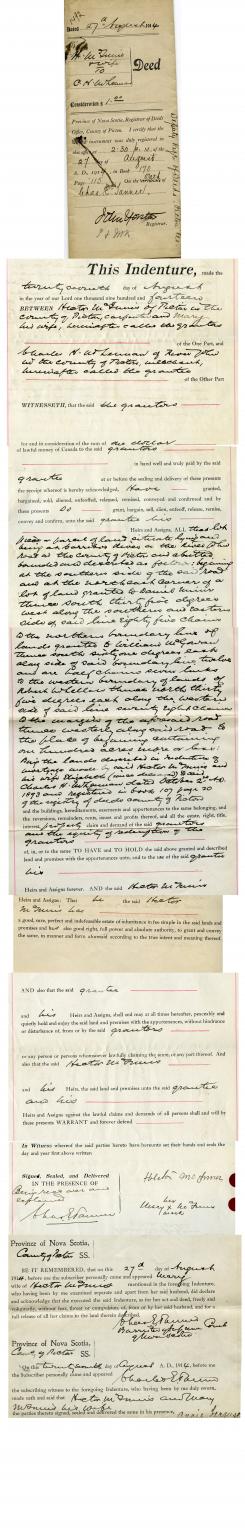 Dated 27th August 1914
H. McInnis
& wife
TO
C. H. McLennan
Deed
Consideration $ 1.00
Province of Nova Scotia, Registrar of Deeds
Office, County of Pictou. I certify that the
instrument was duly registered in
this office at 2:30 P. M. of the
27 day of August
A. D. 1914, in Book 170
Page 113 On the
Chas. E. Tanner
Registrar.
This Indenture, made the
twenty seventh day of August
in the year of our Lord one thousand nine hundred and fourteen
BETWEEN Hector McInnis of Pictou in the
County of Pictou, and Mary
his wife, hereinafter called the grantors
of the One Part, and
Charles H. McLennan of River John
in the County of Pictou, merchant,
hereinafter called the grantee
of the Other Part
WITNESSETH, that the said the grantors
for and in consideration of the sum of one dollar
of lawful money of Canada to the said grantors
in hand well and truly paid by the said
grantee at or before the sealing and delivery of these presents
the receipt whereof is hereby acknowledged, have granted,
bargained, sold, aliened, enfeoffed, released, remised, conveyed and confirmed and by
these presents Do grant, bargain, sell, alien, enfeoff, release, remise,
convey and confirm, unto the said grantee his
Heirs and Assigns, ALL that lot
piece or parcel of land situate lying and
being at
in the County of Pictou and abutted
bounded and described as follows: beginning
at the southern side of the road
and at the north east corner of a
lot of land granted to
thence south thirty five degrees
west along the southern and eastern
side of said line eighty five chains
to the northern boundary line of
lands granted to William McGowan
thence south sixty one degrees east
along side of said boundary line twelve
and one half chains seven links
to the western boundary of lands of
Robert thence north thirty
five degrees east along the western
side of said line seventy eight chains
to the margin of the aforesaid road
thence westerly along said road to
the place of beginning containing
one hundred acres more or less:
Being the lands described in indenture of
mortgage made by said Hector McInnis and
his wife Elizabeth (since deceased) to said
Charles H. McLennan dated October 2nd
1893 and registered in book 107 page 20
of the registry of deeds County of Pictou
and the buildings, hereditaments, easements and appurtenances to the same belonging, and
the reversions, remainders, rents, issues and profits thereof, and all the estate, right, title,
interest, property claim and demand of the said grantors
and the equity of redemption of the
grantors
of, in, or to the same TO HAVE and TO HOLD the said above granted and described
land and premises with the appurtenances, unto and to the use of the said grantee
his
Heirs and Assigns forever. AND the said Hector McInnis
Heirs and Assigns: That he the said Hector
McInnis has
a good, sure, perfect and indefeasible estate of inheritance in fee simple in the said lands and
premises and has also good right, full power and absolute authority, to grant and convey
the same, in manner and form aforesaid according to the true intent and meaning thereof.
AND also that the said grantee
and his Heirs and Assigns, shall and may at all times hereafter, peaceably and
quietly hold and enjoy the said land and premises with the appurtenances, without hindrance
or disturbance of, from or by the said grantors
or any person or persons whomsoever lawfully claiming the same, or any part thereof. And
also that the said Hector McInnis
and his Heirs, the said land and premises unto the said grantee
and his
Heirs and Assigns against the lawful claims and demands of all persons shall and will by
these presents WARRANT and forever defend
In Witness whereof the said parties hereto have hereunto set their hands and seals the
day and year first above written
Signed, Sealed, and Delivered
IN THE PRESENCE OF
explained
Chas E Tanner
Hector McInnis
her
Mary X McInnis
mark
Province of Nova Scotia,
County of Pictou SS.
BE IT REMEMBERED, that on this 27th day of August
1914, before me the subscriber personally came and appeared Mary
wife of Hector McInnis mentioned in the foregoing Indenture,
who having been by me examined separate and apart from her said husband, did declare
and acknowledge that she executed the said Indenture, as for her act and deed, freely and
voluntarily, without fear, threat or compulsion, of, from or by her said husband, and for a
full release of all her claims to the lands therein described.
Chas E Tanner
Barrister of Supreme Court
of Nova Scotia
Province of Nova Scotia,
County of Pictou SS.
On this twenty seventh day of August A. D. 1914, before me
the Subscriber personally came and appeared
Charles E Tanner
the subscribing witness to the foregoing Indenture, who having been by me duly sworn,
made oath and said that Hector McInnis and Mary
McInnis his wife
the parties thereto signed, sealed and delivered the same in his presence,